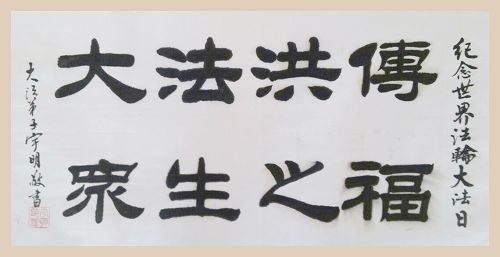 紀念世界法輪大法日
大法洪傳
眾生之福
大法弟子宇明敬書